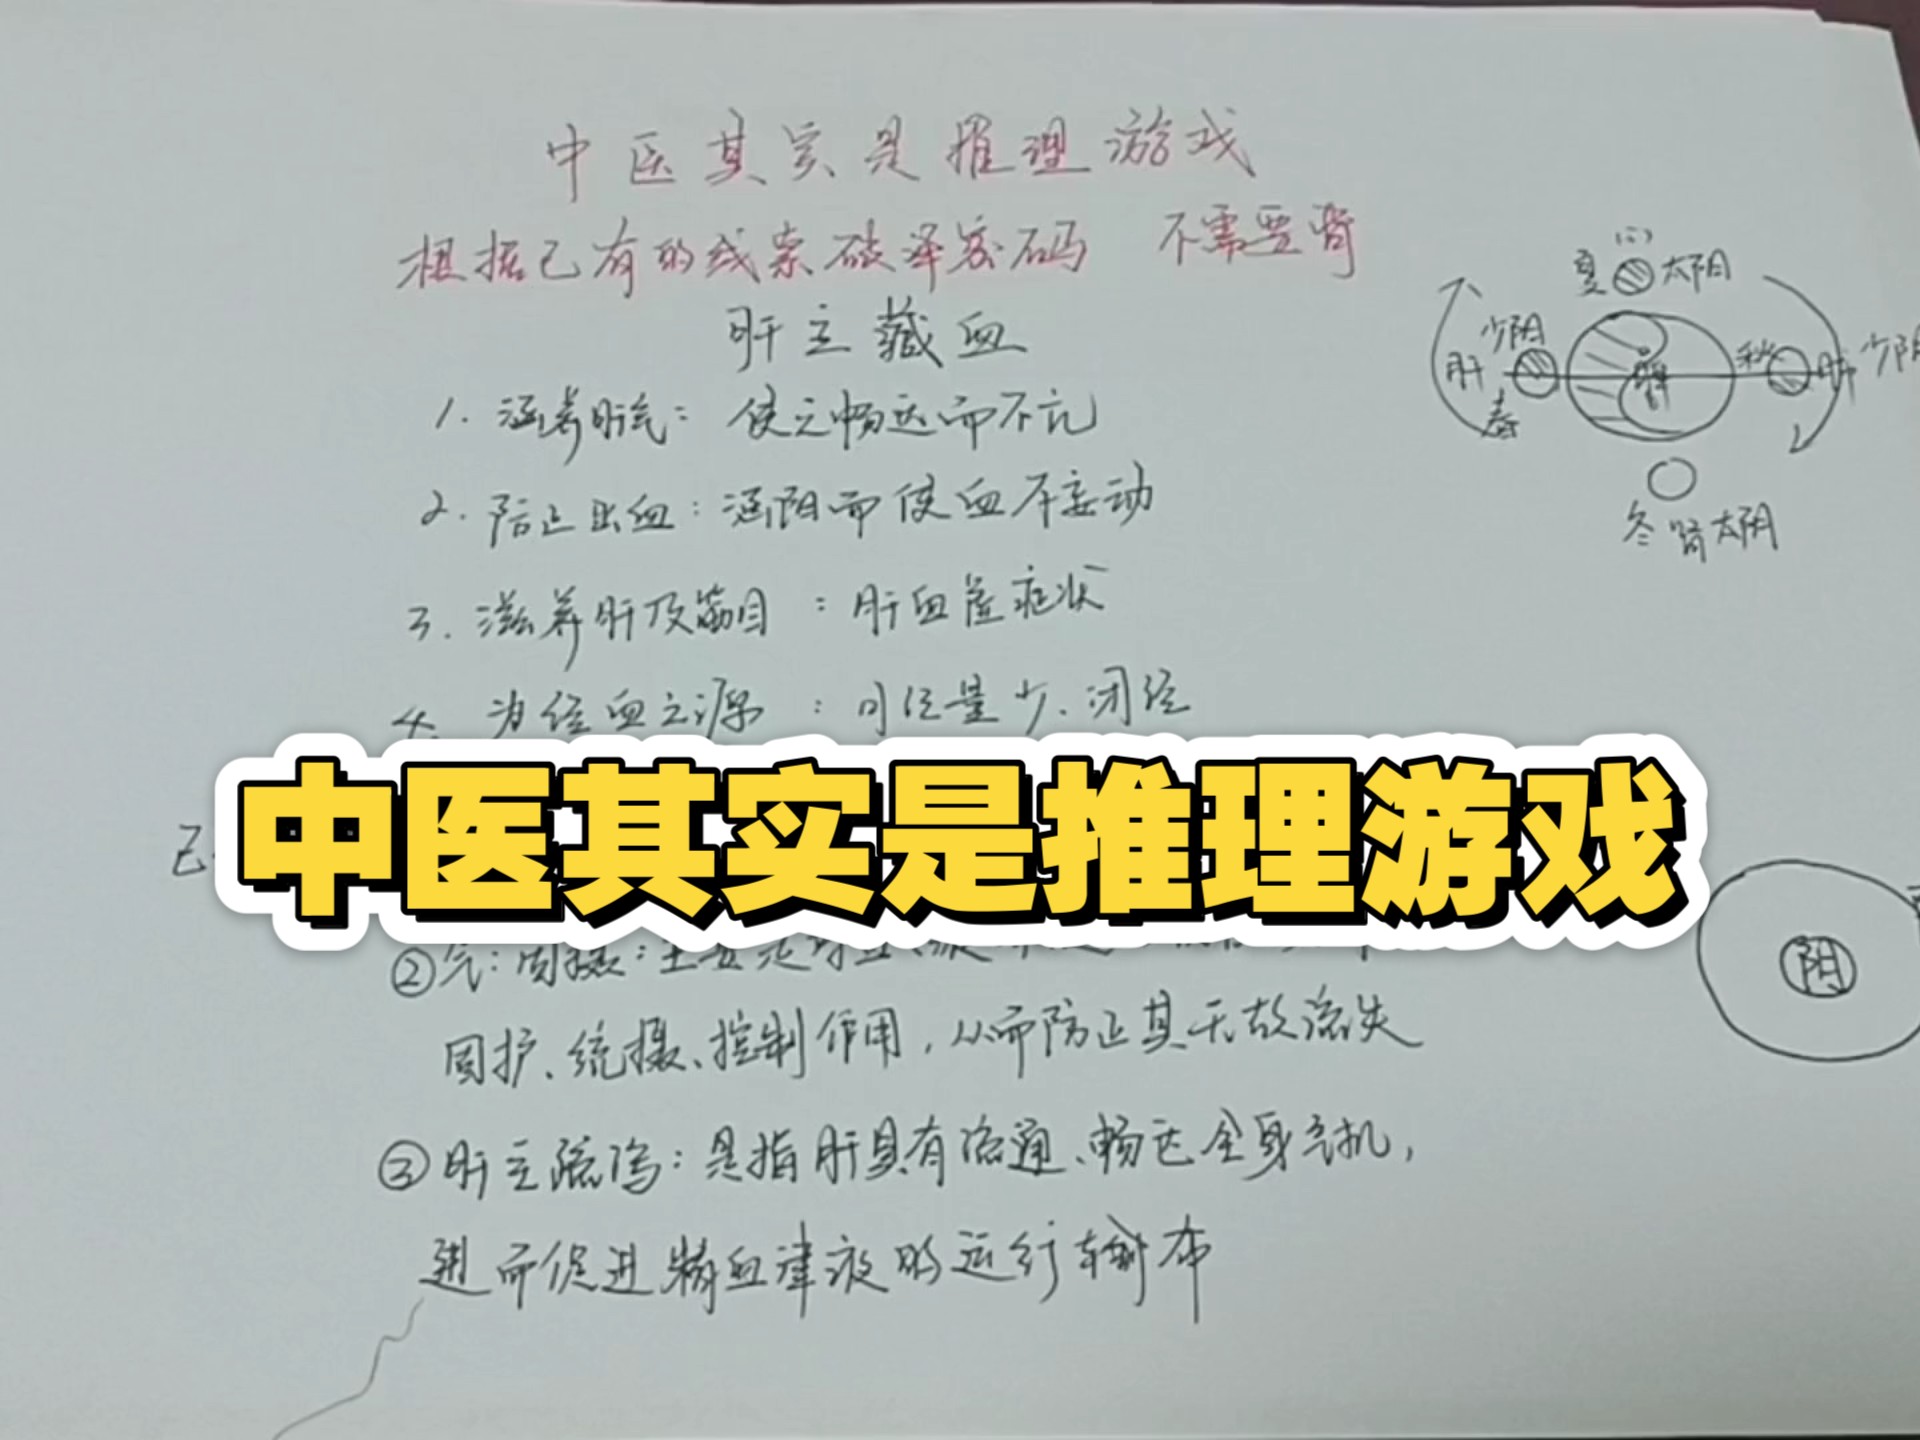 中医其实是推理游戏
根据已有的线索破译密码 不需要背
肝主藏血
1. 涵养肝气：使之畅达而不亢
2. 防止出血：涵阴而使血不妄动
3. 滋养肝及筋目：肝血虚症状
4. 为经血之源：月经量少、闭经
中医其实是推理游戏
已
②气：固摄：主要是对血
固护、统摄、控制作用，从而防止其无故流失
③肝主疏泄：是指肝具有疏通、畅达全身气机，
进而促进精血津液的运行输布
(心)
夏 太阳
少阳
肝
春
脾
秋 肺 少阴
冬 肾 太阴
阳